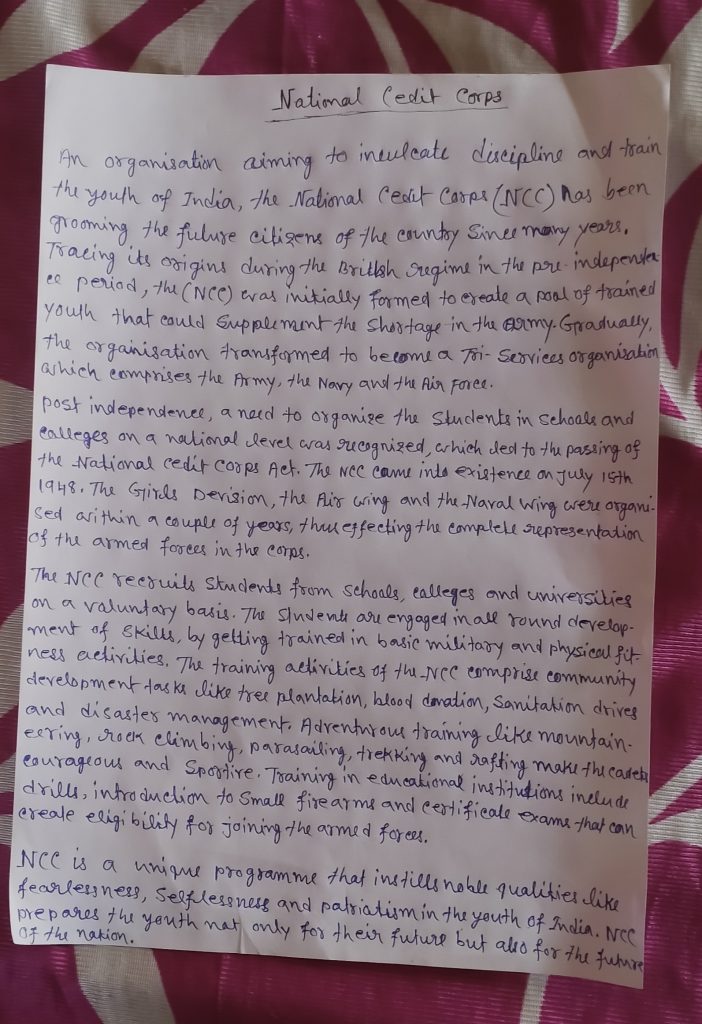 National Cedit Corps
An organisation aiming to inculcate discipline and train
the youth of India, the National Cedit Corps (NCC) has been
grooming the future citizens of the country Since many years.
Tracing its origins during the British regime in the pre-independen
ce period, the (NCC) was initially formed to create a pool of trained
youth that could Supplement the Shortage in the army. Gradually,
the organisation transformed to become a Tri-Services organisation
which comprises the Army, the Navy and the Air Force.
post independence, a need to organise the Students in Schools and
colleges on a national level was recognized, which led to the passing of
the National Cedit Corps Act. The NCC came into existence on July 15th
1948. The Girls Devision, the Air wing and the Naval Wing were organi-
sed within a couple of years, thus effecting the complete representation
of the armed forces in the corps.
The NCC recruits Students from Schools, colleges and universities
on a valuntary basis. The Students are engaged in all round develop-
ment of Skills, by getting trained in basic military and physical fit-
ness activities. The training activities of the NCC comprise community
development tasks like tree plantation, blood donation, Sanitation drives
and disaster management. Adventurous training like mountain-
eering, rock climbing, parasailing, trekking and rafting make the cadets
courageous and Sportive. Training in educational institutions include
drills, introduction to Small firearms and certificate exams that can
create eligibility for joining the armed forces.
NCC is a unique programme that instills noble qualities like
fearlessness, Selflessness and patriatism in the youth of India. NCC
prepares the youth not only for their future but also for the future
of the nation.